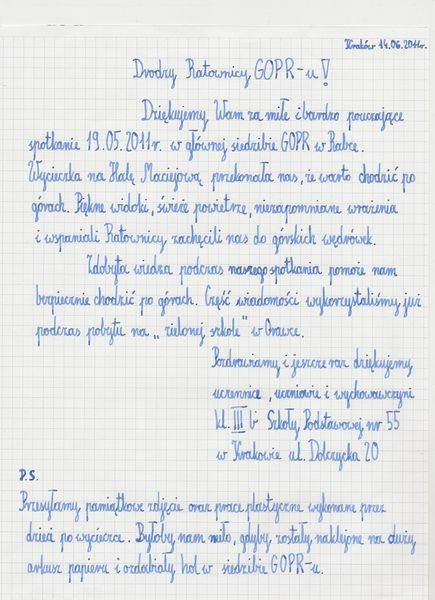 Kraków 14.06.2011r.
Drodzy Ratownicy GOPR-u!
Dziękujemy Wam za miłe i bardzo pouczające
spotkanie 19.05.2011r. w głównej siedzibie GOPR w Rabce.
Wycieczka na Halę Maciejową przekonała nas, że warto chodzić po
górach. Piękne widoki, świeże powietrze, niezapomniane wrażenia
i wspaniali Ratownicy zachęcili nas do górskich wędrówek.
Zdobyta wiedza podczas naszego spotkania pomoże nam
bezpiecznie chodzić po górach. Część wiadomości wykorzystaliśmy już
podczas pobytu na „zielonej szkole" w Orawce.
Pozdrawiamy i jeszcze raz dziękujemy
uczennice, uczniowie i wychowawczyni
kl. III b Szkoły Podstawowej nr 55
w Krakowie ul. Dobczycka 20
P.S.
Przesyłamy pamiątkowe zdjęcie oraz prace plastyczne wykonane przez
dzieci po wycieczce. Byłoby nam miło, gdyby zostały naklejone na duży
arkusz papieru i ozdabiały hol w siedzibie GOPR-u.